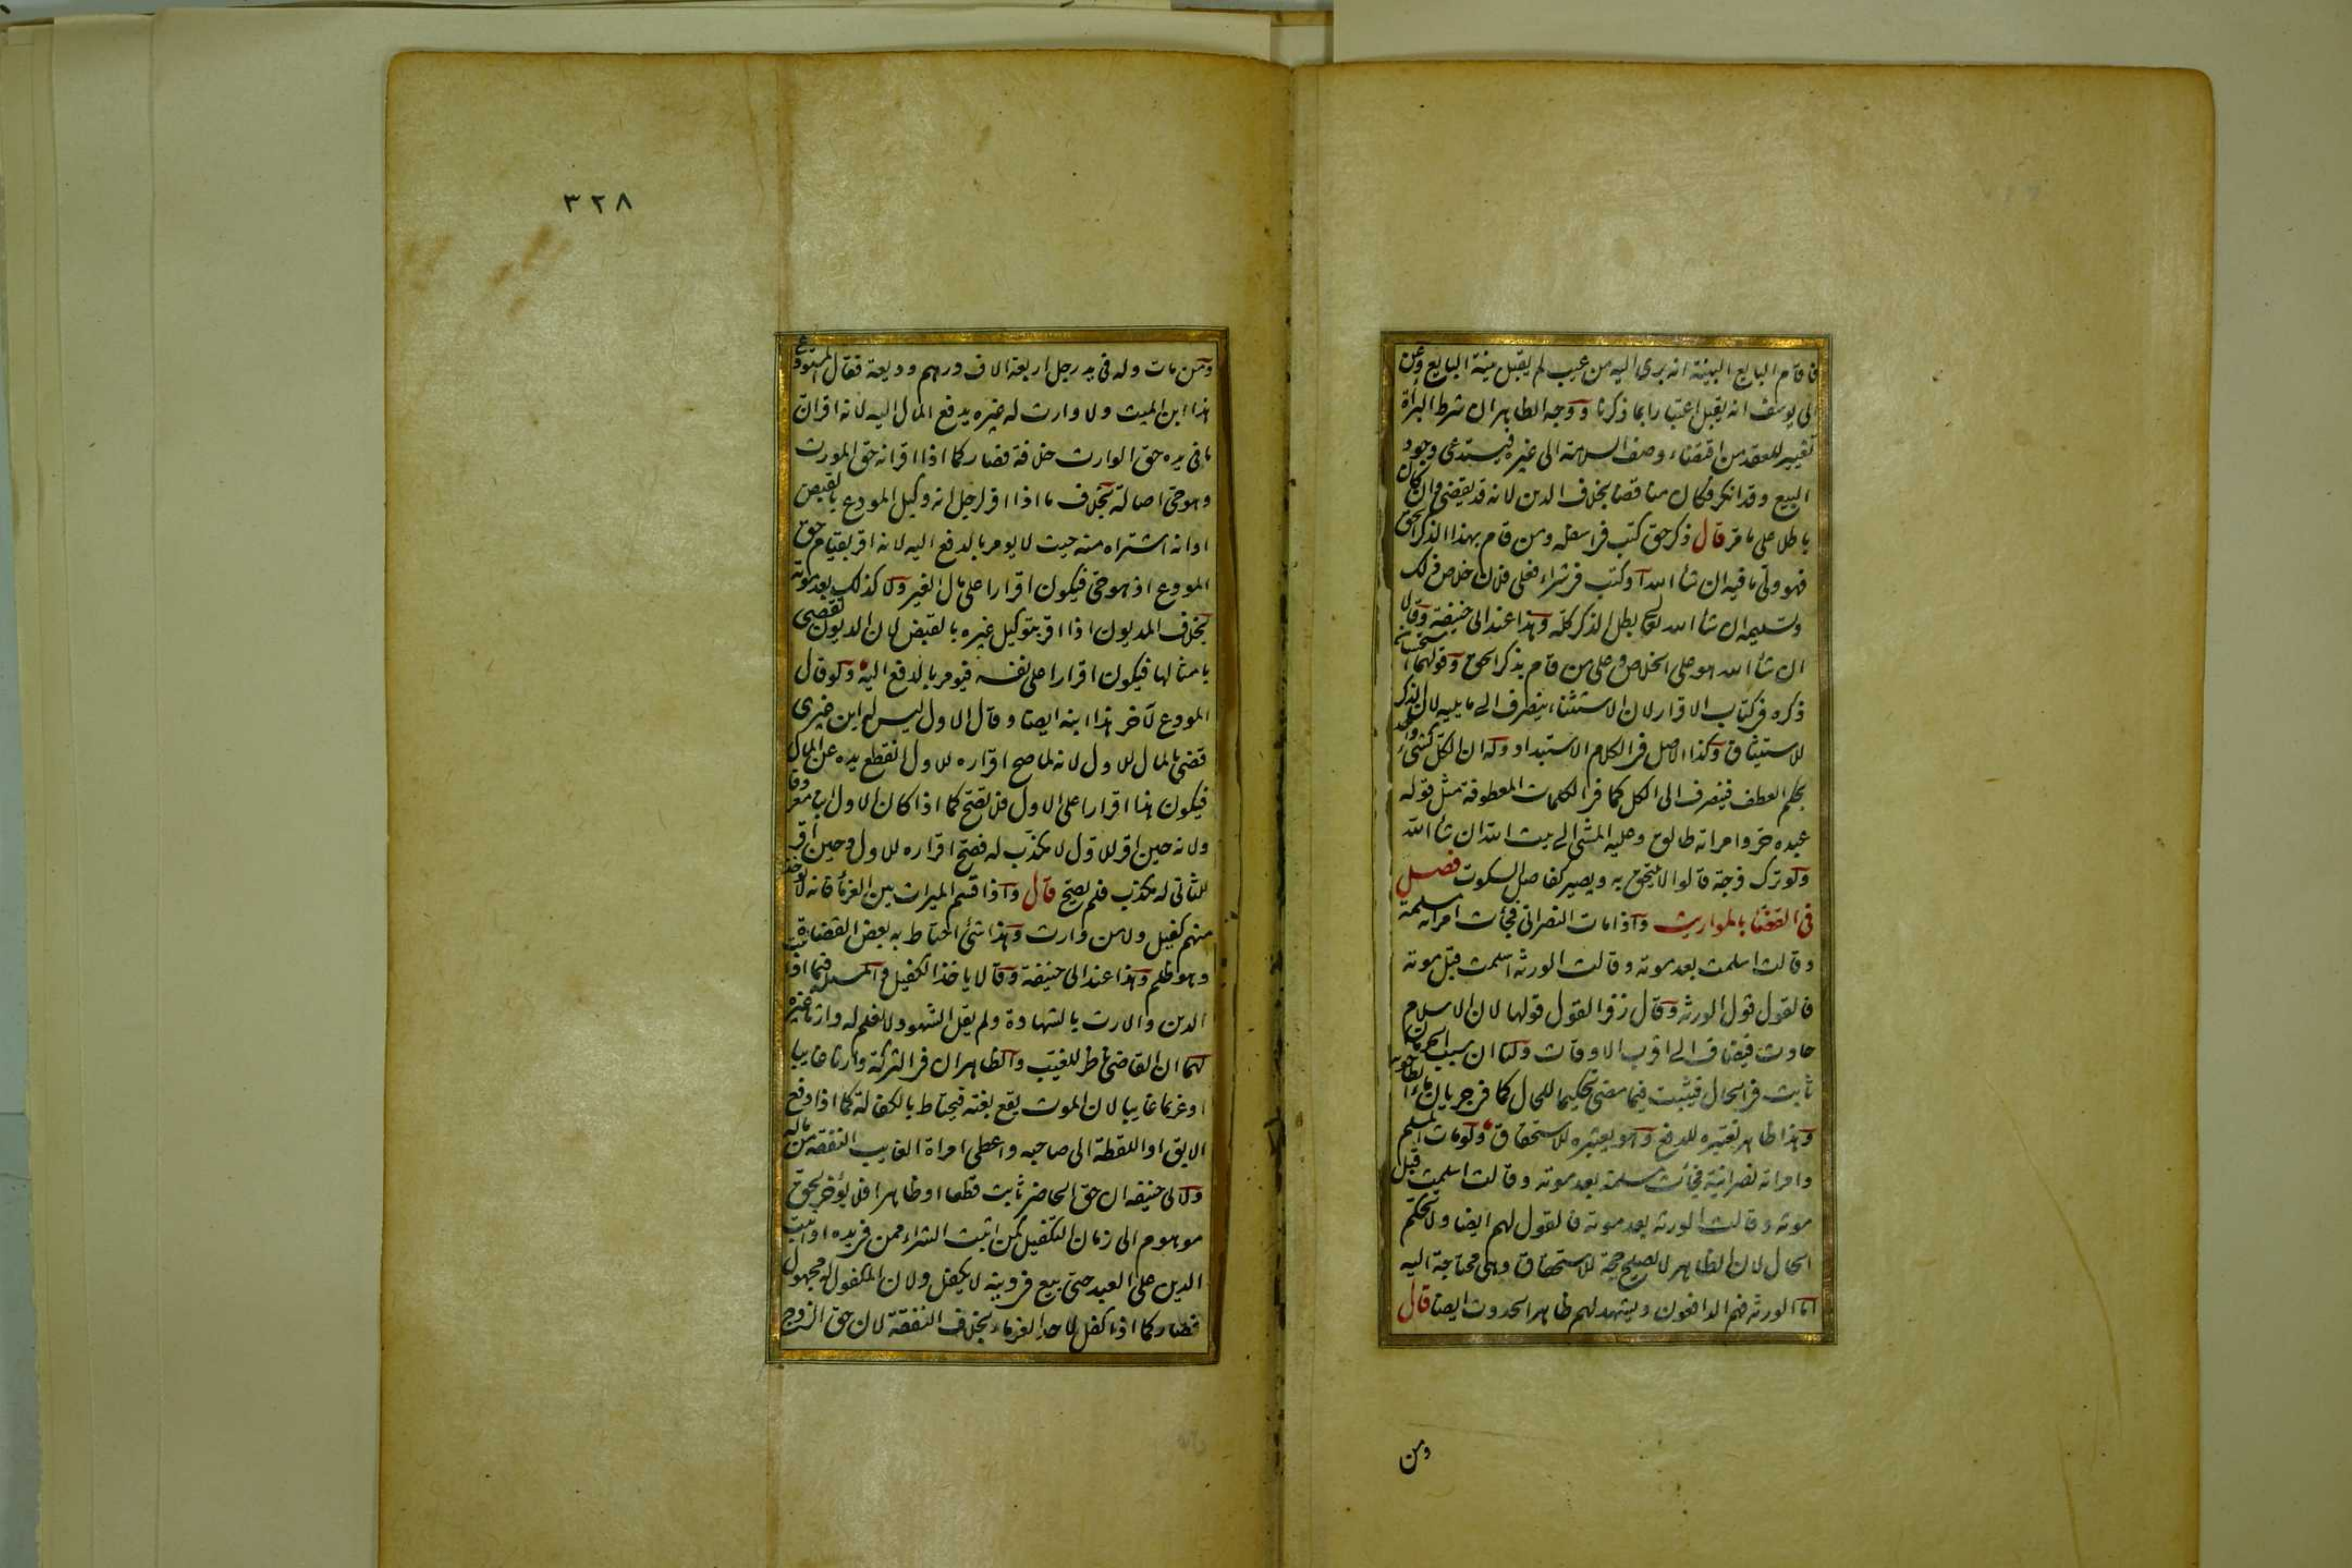 فاقام البايع البينة انه برئ اليه من عيب لم يقبل بينة البايع وعن
ابى يوسف انه يقبل اعتبارا بما ذكرنا ووجه الظاهر ان شرط البرأة
تغيير للعقد من اقتضاء وصف السلامة الى غيره فيستدعى وجود
البيع وقد انكر فكان مناقضا بخلاف الدين لانه قد يقضى وان كان
باطلا على ما مر قال ذكر حق كتب فى اسفله ومن قام بهذا الذكر الحق
فهو ولى ما فيه ان شأ الله او كتب فى شراء فعلى فلان خلاص ذلك
وتسليمه ان شأ الله تعالى بطل الذكر كله وهذا عند ابى حنيفة وقالا
ان شأ الله هو على الخلاص وعلى من قام بذكر الحق وقولهما استحسان
ذكره فى كتاب الاقرار لان الاستثناء ينصرف الى ما يليه لان الذكر
للاستيثاق وكذا الاصل فى الكلام الاستبداد وله ان الكل كشئ واحد
بحكم العطف فيصرف الى الكل كما فى الكلمات المعطوفة مثل قوله
عبده حر وامراته طالق وعليه المشى الى بيت الله ان شأ الله
ولو ترك فرجة قالوا لا يلتحق به ويصير كفاصل السكوت فصل
فى القضأ بالمواريث واذا مات النصرانى فجأت امراته مسلمة
وقالت اسلمت بعد موته وقالت الورثه اسلمت قبل موته
فالقول قول الورثه وقال زفر القول قولها لان الاسلام
حادث فيضاف الى اقرب الاوقات ولنا ان سبب الحرمان
ثابت فى الحال فيثبت فيما مضى تحكيما للحال كما فى جريان ماء الطاحونه
وهذا ظاهر نعتبره للدفع وهو يعتبره للاستحقاق ولو مات المسلم
وامراته نصرانية فجأت مسلمة بعد موته وقالت اسلمت قبل
موته وقالت الورثه بعد موته فالقول لهم ايضا ولا يحكم
الحال لان الظاهر لا يصلح حجة للاستحقاق وهى محتاجة اليه
اما الورثه فهم الدافعون ويشهد لهم ظاهر الحدوث ايضا قال
ومن
٣٢٨
ومن مات وله فى يد رجل اربعة الاف درهم وديعة فقال المستودع
هذا ابن الميت ولا وارث له غيره يدفع المال اليه لانه اقر ان
ما فى يده حق الوارث خلافة فصار كما اذا اقر انه حق المورث
وهو حى اصالة بخلاف ما اذا اقر لرجل انه وكيل المودع بالقبض
او انه اشتراه منه حيث لا يومر بالدفع اليه لانه اقر بقيام حق
المودع اذ هو حى فيكون اقرارا على مال الغير ولا كذلك بعد موته
بخلاف المديون اذا اقر بتوكيل غيره بالقبض لان الديون تقضى
بامثالها فيكون اقرارا على نفسه فيومر بالدفع اليه ولو قال
المودع لآخر هذا ابنه ايضا وقال الاول ليس له ابن غيرى
قضى بالمال للاول لانه لما صح اقراره للاول انقطع يده عن المال
فيكون هذا اقرارا على الاول فلا يصح كما اذا كان الاول ابنا معروفا
ولانه حين اقر للاول لا مكذب له فصح اقراره للاول وحين اقر
للثانى له مكذب فلم يصح قال واذا قسم الميراث بين الغرمأ فانه لا يوخذ
منهم كفيل ولا من وارث وهذا شئ احتاط به بعض القضاة
وهو ظلم وهذا عند ابى حنيفة وقالا ياخذ الكفيل والمسئلة فيما اذا ثبت
الدين والارث بالشهادة ولم يقل الشهود لا نعلم له وارثا غيره
لهما ان القاضى ناظر للغيب والظاهر ان فى التركة وارثا غايبا
او غريما غايبا لان الموت يقع بغته فيحتاط بالكفالة كما اذا دفع
الابق او اللقطة الى صاحبه واعطى امراة الغايب النفقة من ماله
ولابى حنيفه ان حق الحاضر ثابت قطعا او ظاهرا فلا يؤخر لحق
موهوم الى زمان التكفيل كمن اثبت الشراء ممن فى يده او اثبت
الدين على العبد حتى بيع فى دينه لا يكفل ولان المكفول له مجهول
فصار كما اذا كفل لاحد الغرماء بخلاف النفقة لان حق الزوج